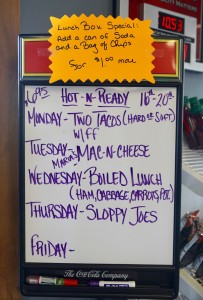 Lunch Box Special:
Add a can of Soda
and a Bag of Chips
for $1.00 more
$6.95 Hot-N-Ready 16th-20th
Monday-Two Tacos (Hard or Soft)
w/FF
Tuesday- Mama's Mac-N-Cheese
Wednesday-Boiled Lunch
(Ham, Cabbage, Carrots, Pot)
Thursday-Sloppy Joes
Friday-
The Coca-Cola Company
10:53